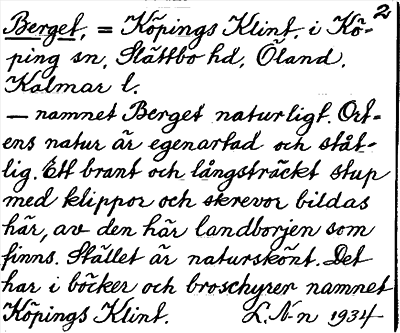 2
Berget, = Köpings Klint, i Kö-
ping sn, Slättbo hd, Öland,
Kalmar l.
— namnet Berget naturligt. Ort-
ens natur är egenartad och ståt-
lig. Ett brant och långsträckt stup
med klippor och skrevor bildas
här, av den här landborjen som
finns. Stället är naturskönt. Det
har i böcker och broschyrer namnet
Köpings Klint. L.N-n 1934